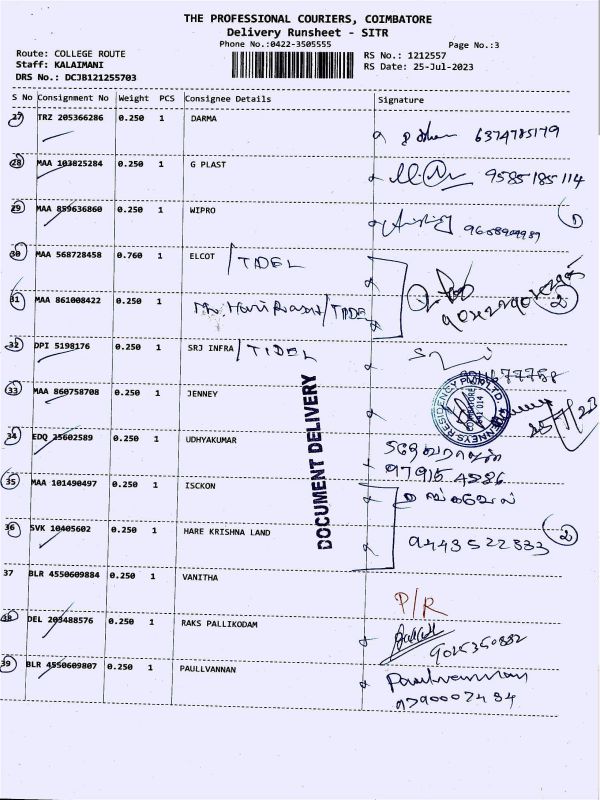 THE PROFESSIONAL COURIERS, COIMBATORE
Delivery Runsheet - SITR
Phone No.:0422-3505555
Page No.:3
Route: COLLEGE ROUTE
Staff: KALAIMANI
DRS No.: DCJB121255703
RS No.: 1212557
RS Date: 25-Jul-2023
S No Consignment No Weight PCS Consignee Details Signature
27 TRZ 205366286 0.250 1 DARMA 6374785179
28 MAA 103825284 0.250 1 G PLAST 9585185114
29 MAA 859636860 0.250 1 WIPRO
30 MAA 568728458 0.760 1 ELCOT / TIDEL
31 MAA 861008422 0.250 1 Mr. Hari Prasat / TIDEL
2
32 DPI 5198176 0.250 1 SRJ INFRA / TIDEL
33 MAA 860758708 0.250 1 JENNEY
25/7/23
34 EDQ 25602589 0.250 1 UDHYAKUMAR
35 MAA 101490497 0.250 1 ISCKON
36 SVK 10405602 0.250 1 HARE KRISHNA LAND 9443522833 2
37 BLR 4550609884 0.250 1 VANITHA P/R
38 DEL 203488576 0.250 1 RAKS PALLIKODAM 9025350882
39 BLR 4550609807 0.250 1 PAULLVANNAN Paulvannan
9790007484
DOCUMENT DELIVERY